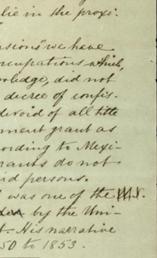 lie in the proxi-
ensions" we have
occupations which,
owledge, did not
decree of confis-
devoid of all title
ment grant as
ording to Mexi-
rants do not
id persons.
was one of the
by the Uni-
t. His narrative
50 to 1853.